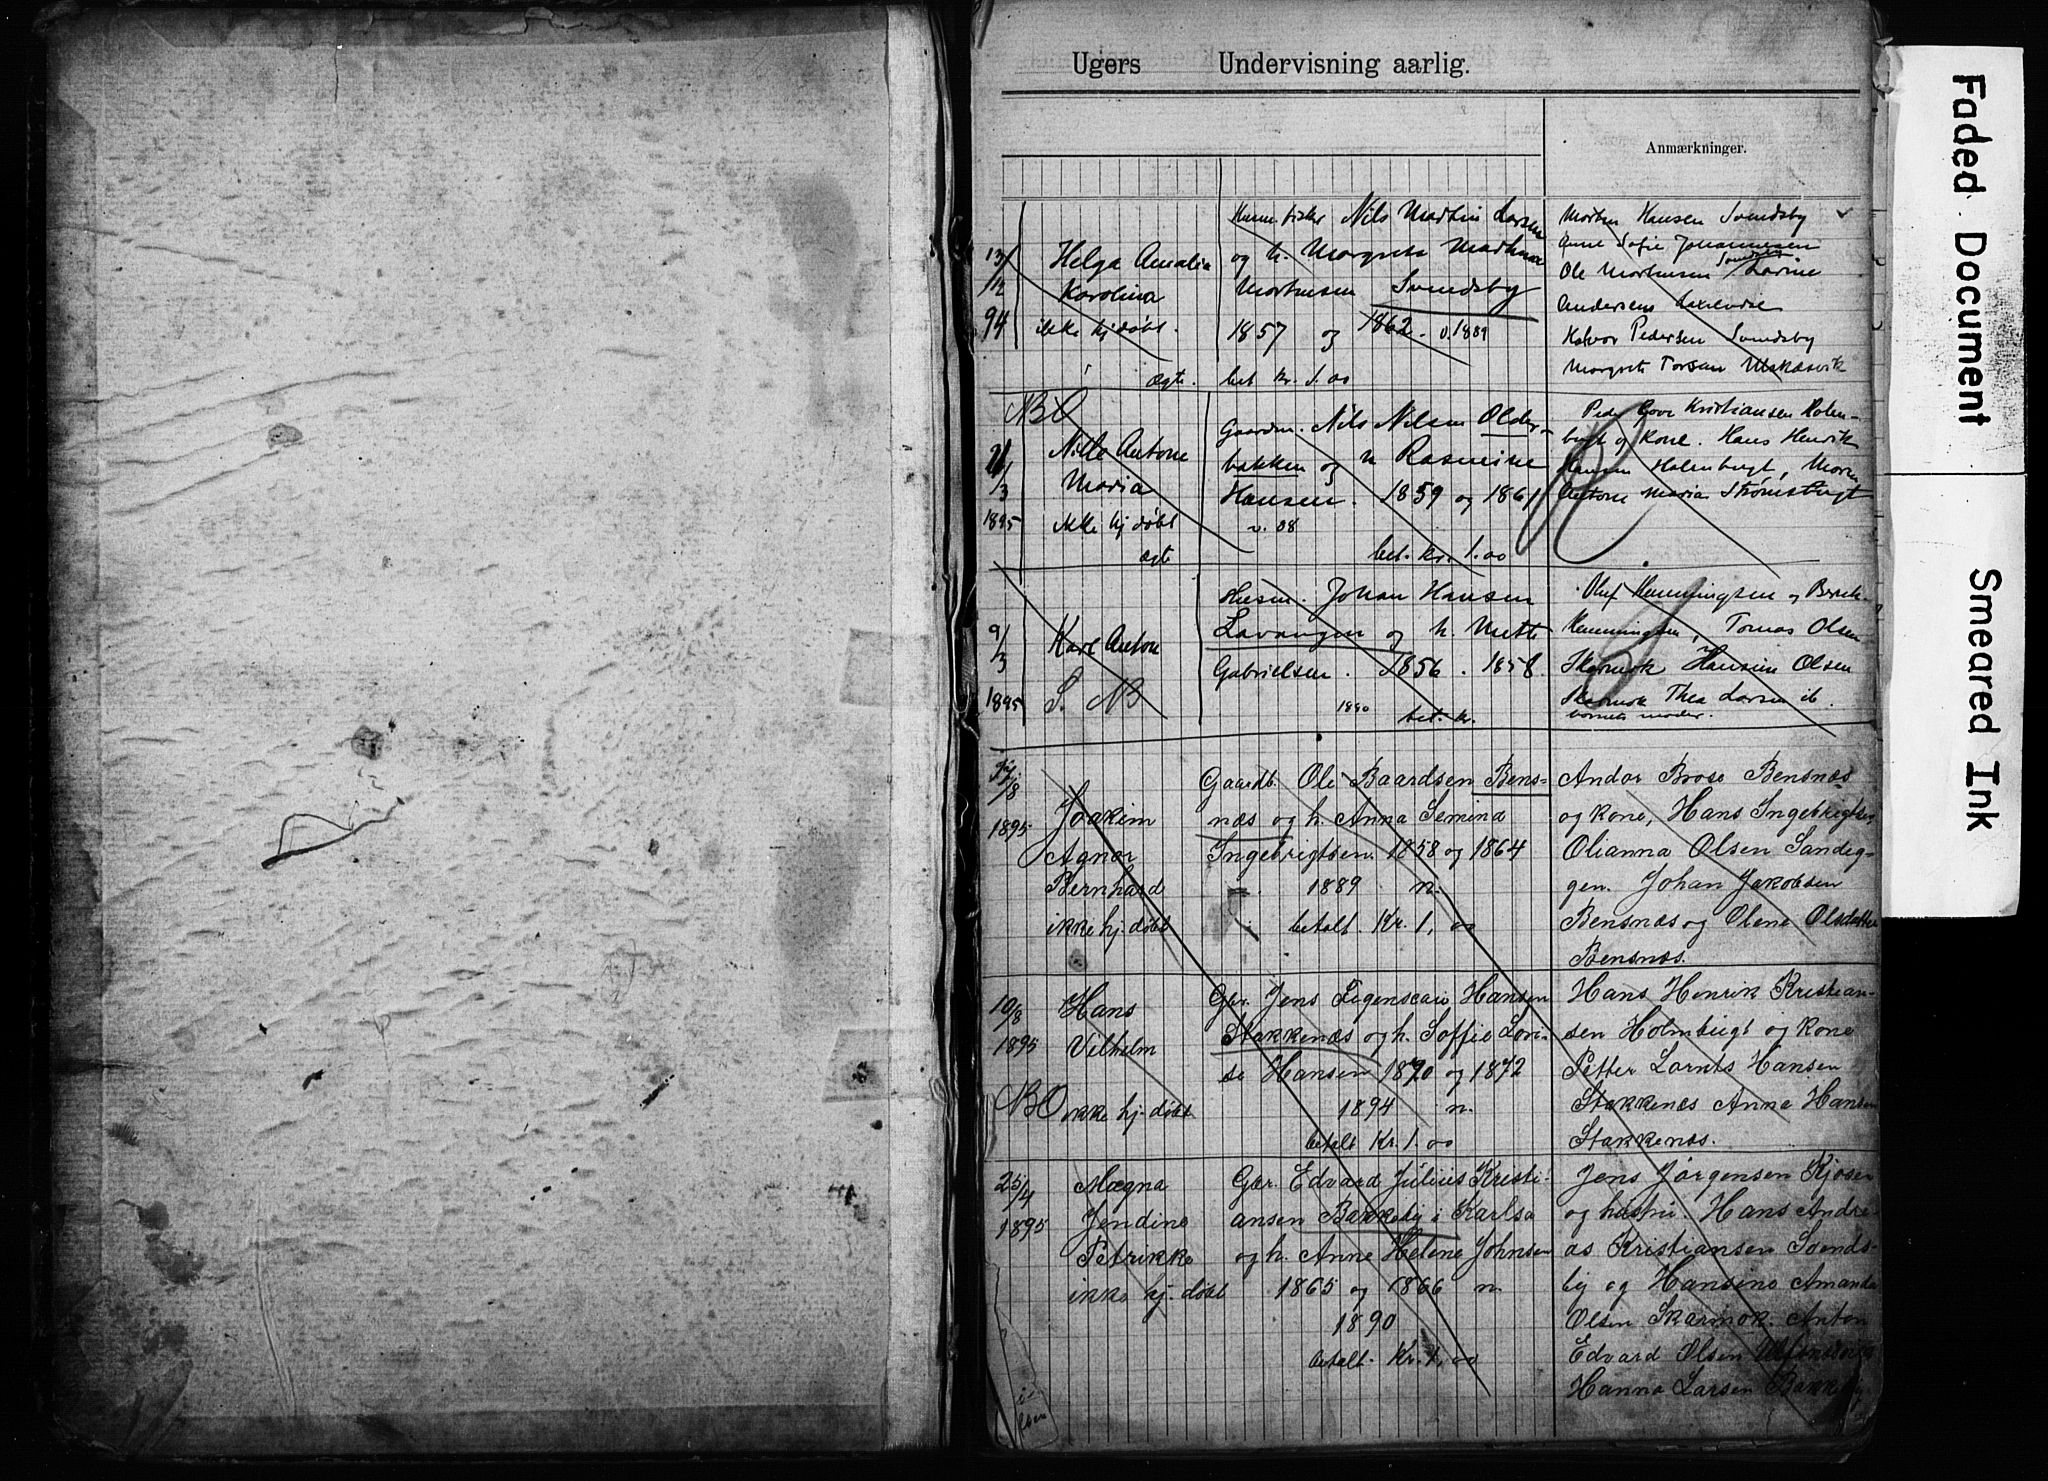 Ugers Undervisning aarlig.
Anmærkninger.
13/12 94
Helga Amalia
Karolina
ikke hj døbt.
ægte.
Nils Martin Larsen
og h. Margrete Mathea
Mortensen Svendsby
1857 og 1862. v. 1889
bet kr. 1.00
Morten Hansen Svendsby
Anne Sofie Johannesen
Ole Mortensen Svendsby Lovine
Andersens
Halvor Pedersen Svendsby
Margrete
NB
21/3 1895
Nille Antone
Maria
ikke hj døbt
ægt
Gaardm. Nils Nilsen Older-
bakken og h Rasmine
Hansen. 1859 og 1861
v. 08
bet. kr. 1.00
Peder Kristiansen Holm-
bugt og kone. Hans Henrik
Hansen Holmbugt,
Antone Maria Strømsbugt
9/3 1895
Karl Anton
S. NB
Husm. Johan Hansen
Lavangen og h. Mette
Gabrielsen. 1856. 1858.
1890 bet. kr.
Oluf Henningsen og Berit
Henningsen, Tomas Olsen
Skarmok Hansine Olsen
Skarmok Thea Larsen ib.
barnets moder.
/8 1895
Joakim
Agnor
Bernhard
ikke hj. døbt
Gaardb. Ole Baardsen Bens-
næs og h. Anna Semina
Ingebrigtsen. 1858 og 1864
1889 n.
betalt. Kr. 1, 00
Andor Brose Bensnæs
og kone, Hans Ingebrigtsen,
Olianna Olsen Sandeg-
gen. Johan Jakobsen
Bensnæs og Olene Olsdatter
Bensnæs.
10/8 1895
Hans
Vilhelm
NB ikke hj. døbt
Gbr. Jens Hansen
Stakkenæs og h. Soffie Lovi-
se Hansen 1870 og 1872
1894 n.
betalt Kr. 1.00
Hans Henrik Kristian-
sen Holmbugt og kone
Petter Lornts Hansen
Stakkenæs Anna Hansen
Stakkenæs.
25/4 1895
Magna
Jendine
Petrikke
ikke hj. døbt
Gbr. Edvard Julius Kristi-
ansen Bakkeby i Karlsø
og h. Anne Helene Johnsen
1865 og 1866 n.
1890
betalt. Kr. 1, 00
Jens Jørgensen Kjosen
og hustru. Hans Andre-
as Kristiansen Svends-
by og Hansine Amanda
Olsen Skarmok. Anton
Edvard Olsen
Hanna Larsen Bakkeby
Faded Document
Smeared Ink